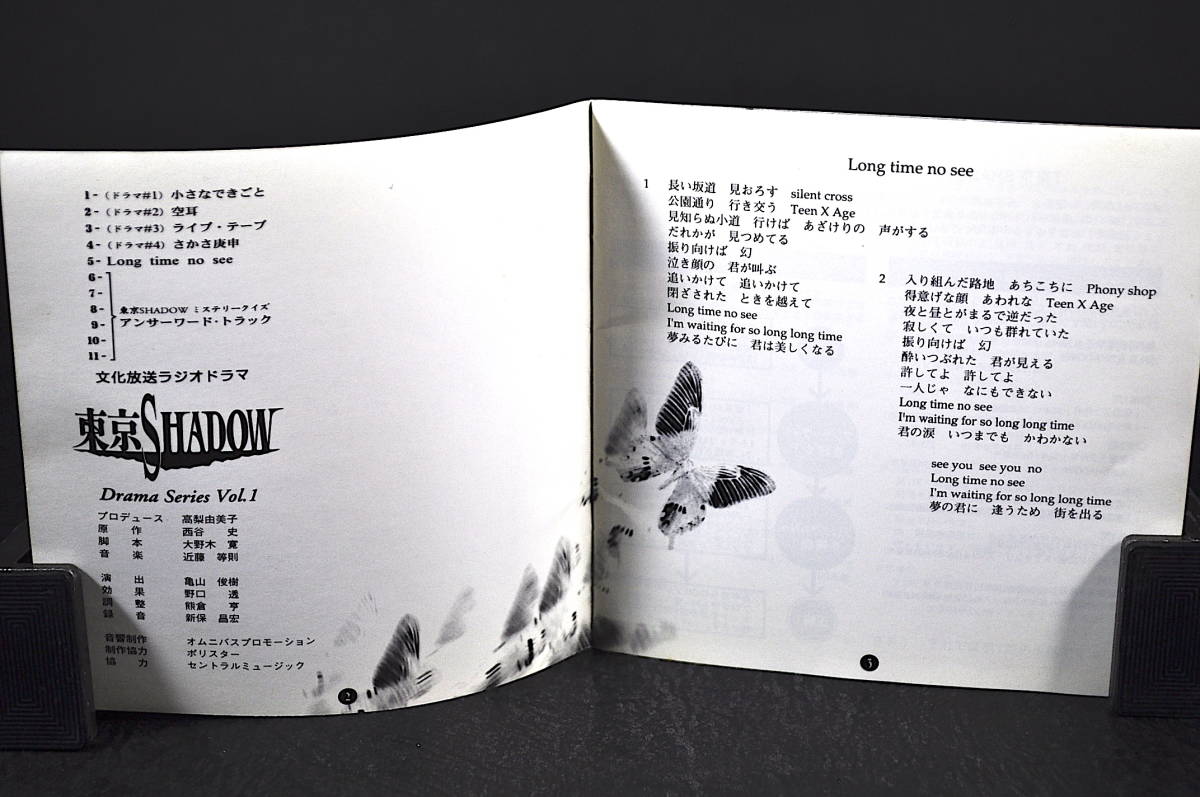 1-（ドラマ#1）小さなできごと
2-（ドラマ#2）空耳
3-（ドラマ#3）ライブ・テープ
4-（ドラマ#4）さかさ庚申
5- Long time no see
6-
7-
8- 東京SHADOW ミステリークイズ
9- アンサーワード・トラック
10-
11-
文化放送ラジオドラマ
東京SHADOW
Drama Series Vol.1
プロデュース 高梨由美子
原 作 西谷 史
脚 本 大野木 寛
音 楽 近藤 等則
演 出 亀山 俊樹
効 果 野口 透
調 整 熊倉 亨
録 音 新保 昌宏
音響制作 オムニバスプロモーション
制作協力 ポリスター
協 力 セントラルミュージック
2
Long time no see
1 長い坂道 見おろす silent cross
公園通り 行き交う Teen X Age
見知らぬ小道 行けば あざけりの 声がする
だれかが 見つめてる
振り向けば 幻
泣き顔の 君が叫ぶ
追いかけて 追いかけて
閉ざされた ときを越えて
Long time no see
I'm waiting for so long long time
夢みるたびに 君は美しくなる
2 入り組んだ路地 あちこちに Phony shop
得意げな顔 あわれな Teen X Age
夜と昼とがまるで逆だった
寂しくて いつも群れていた
振り向けば 幻
酔いつぶれた 君が見える
許してよ 許してよ
一人じゃ なにもできない
Long time no see
I'm waiting for so long long time
君の涙 いつまでも かわかない
see you see you no
Long time no see
I'm waiting for so long long time
夢の君に 逢うため 街を出る
3